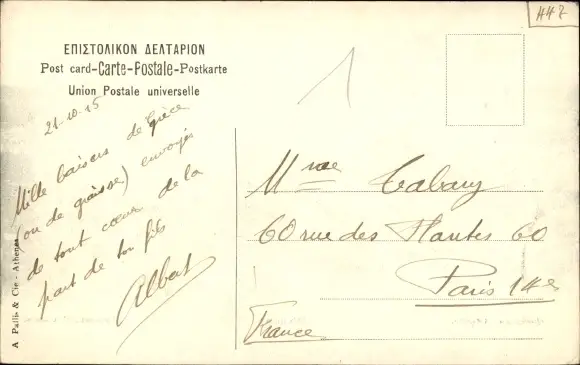 HHZ
ΕΠΙΣΤΟΛΙΚΟΝ ΔΕΛΤΑΡΙΟΝ
Post card-Carte-Postale-Postkarte
Union Postale universelle
21-10-15
Mille baisers de Grèce
(ou de graisse) envoyés
de tout cœur de la
part de ton fils
Albert
A Pallis & Cie - Athènes
1
Mme Cabany
60 rue des Plantes 60
Paris 14e
France